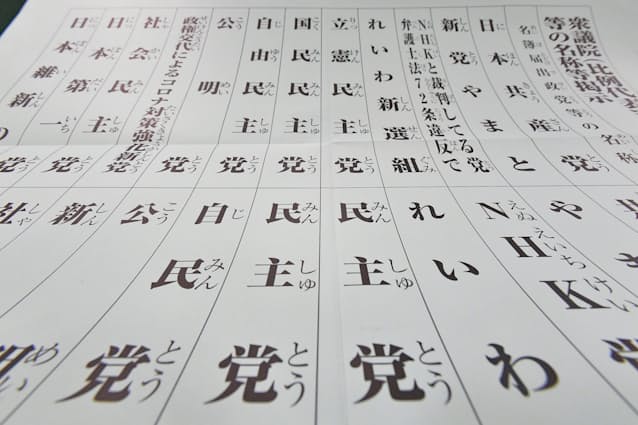 衆議院(比例代表
等の名称等掲示
名簿届出政党等の名称
日本共産党
新党やまと
NHKと裁判してる党
弁護士法72条違反で
れいわ新選組
立憲民主党
国民民主党
自由民主党
公明党
政権交代によるコロナ対策強化新党
社会民主党
日本民主党
日本第一党
日本維新の
党
や
NHK
れいわ
民主党
民主党
自民党
公明
新
社